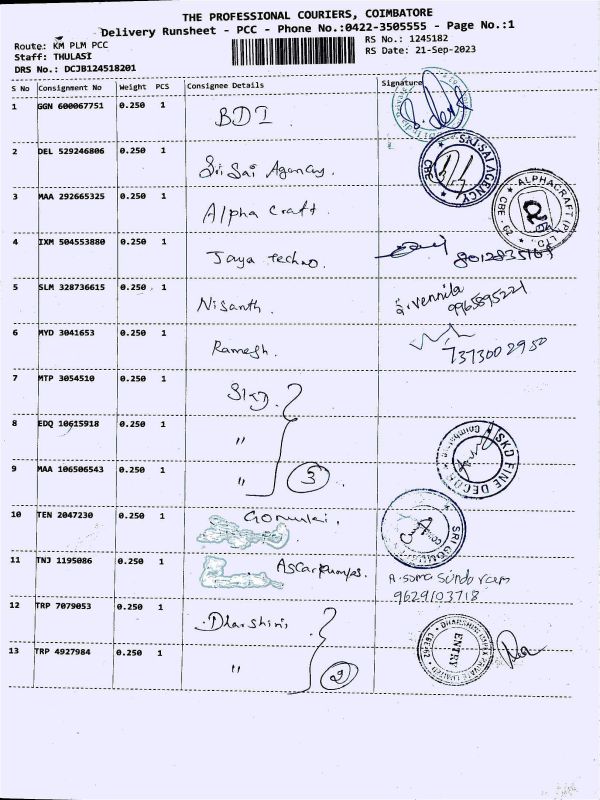 THE PROFESSIONAL COURIERS, COIMBATORE
Delivery Runsheet - PCC - Phone No.:0422-3505555 - Page No.:1
Route: KM PLM PCC
RS No.: 1245182
Staff: THULASI
RS Date: 21-Sep-2023
DRS No.: DCJB124518201
S No Consignment No Weight PCS Consignee Details Signature
1 GGN 600067751 0.250 1 BDI
2 DEL 529246806 0.250 1 Sri Sai Agency. SRI SAI AGENCY CBE
3 MAA 292665325 0.250 1 Alpha Craft. ALPHACRAFT (P) LTD. CBE - 62
4 IXM 504553880 0.250 1 Jaya techno.
5 SLM 328736615 0.250 1 Nisanth. vennila
9965895221
6 MYD 3041653 0.250 1 Ramesh.
7373002950
7 MTP 3054510 0.250 1
8 EDQ 10615918 0.250 1 "
SKD FINE DECORS Coimbatore
9 MAA 106506543 0.250 1 " 3
10 TEN 2047230 0.250 1 SRI
11 TNJ 1195086 0.250 1 Ascarpumps. A. soma sundaram
9629103718
12 TRP 7079053 0.250 1 Dharshini
13 TRP 4927984 0.250 1 " 2 ENTRY PRIVATE LIMITED CBE-62